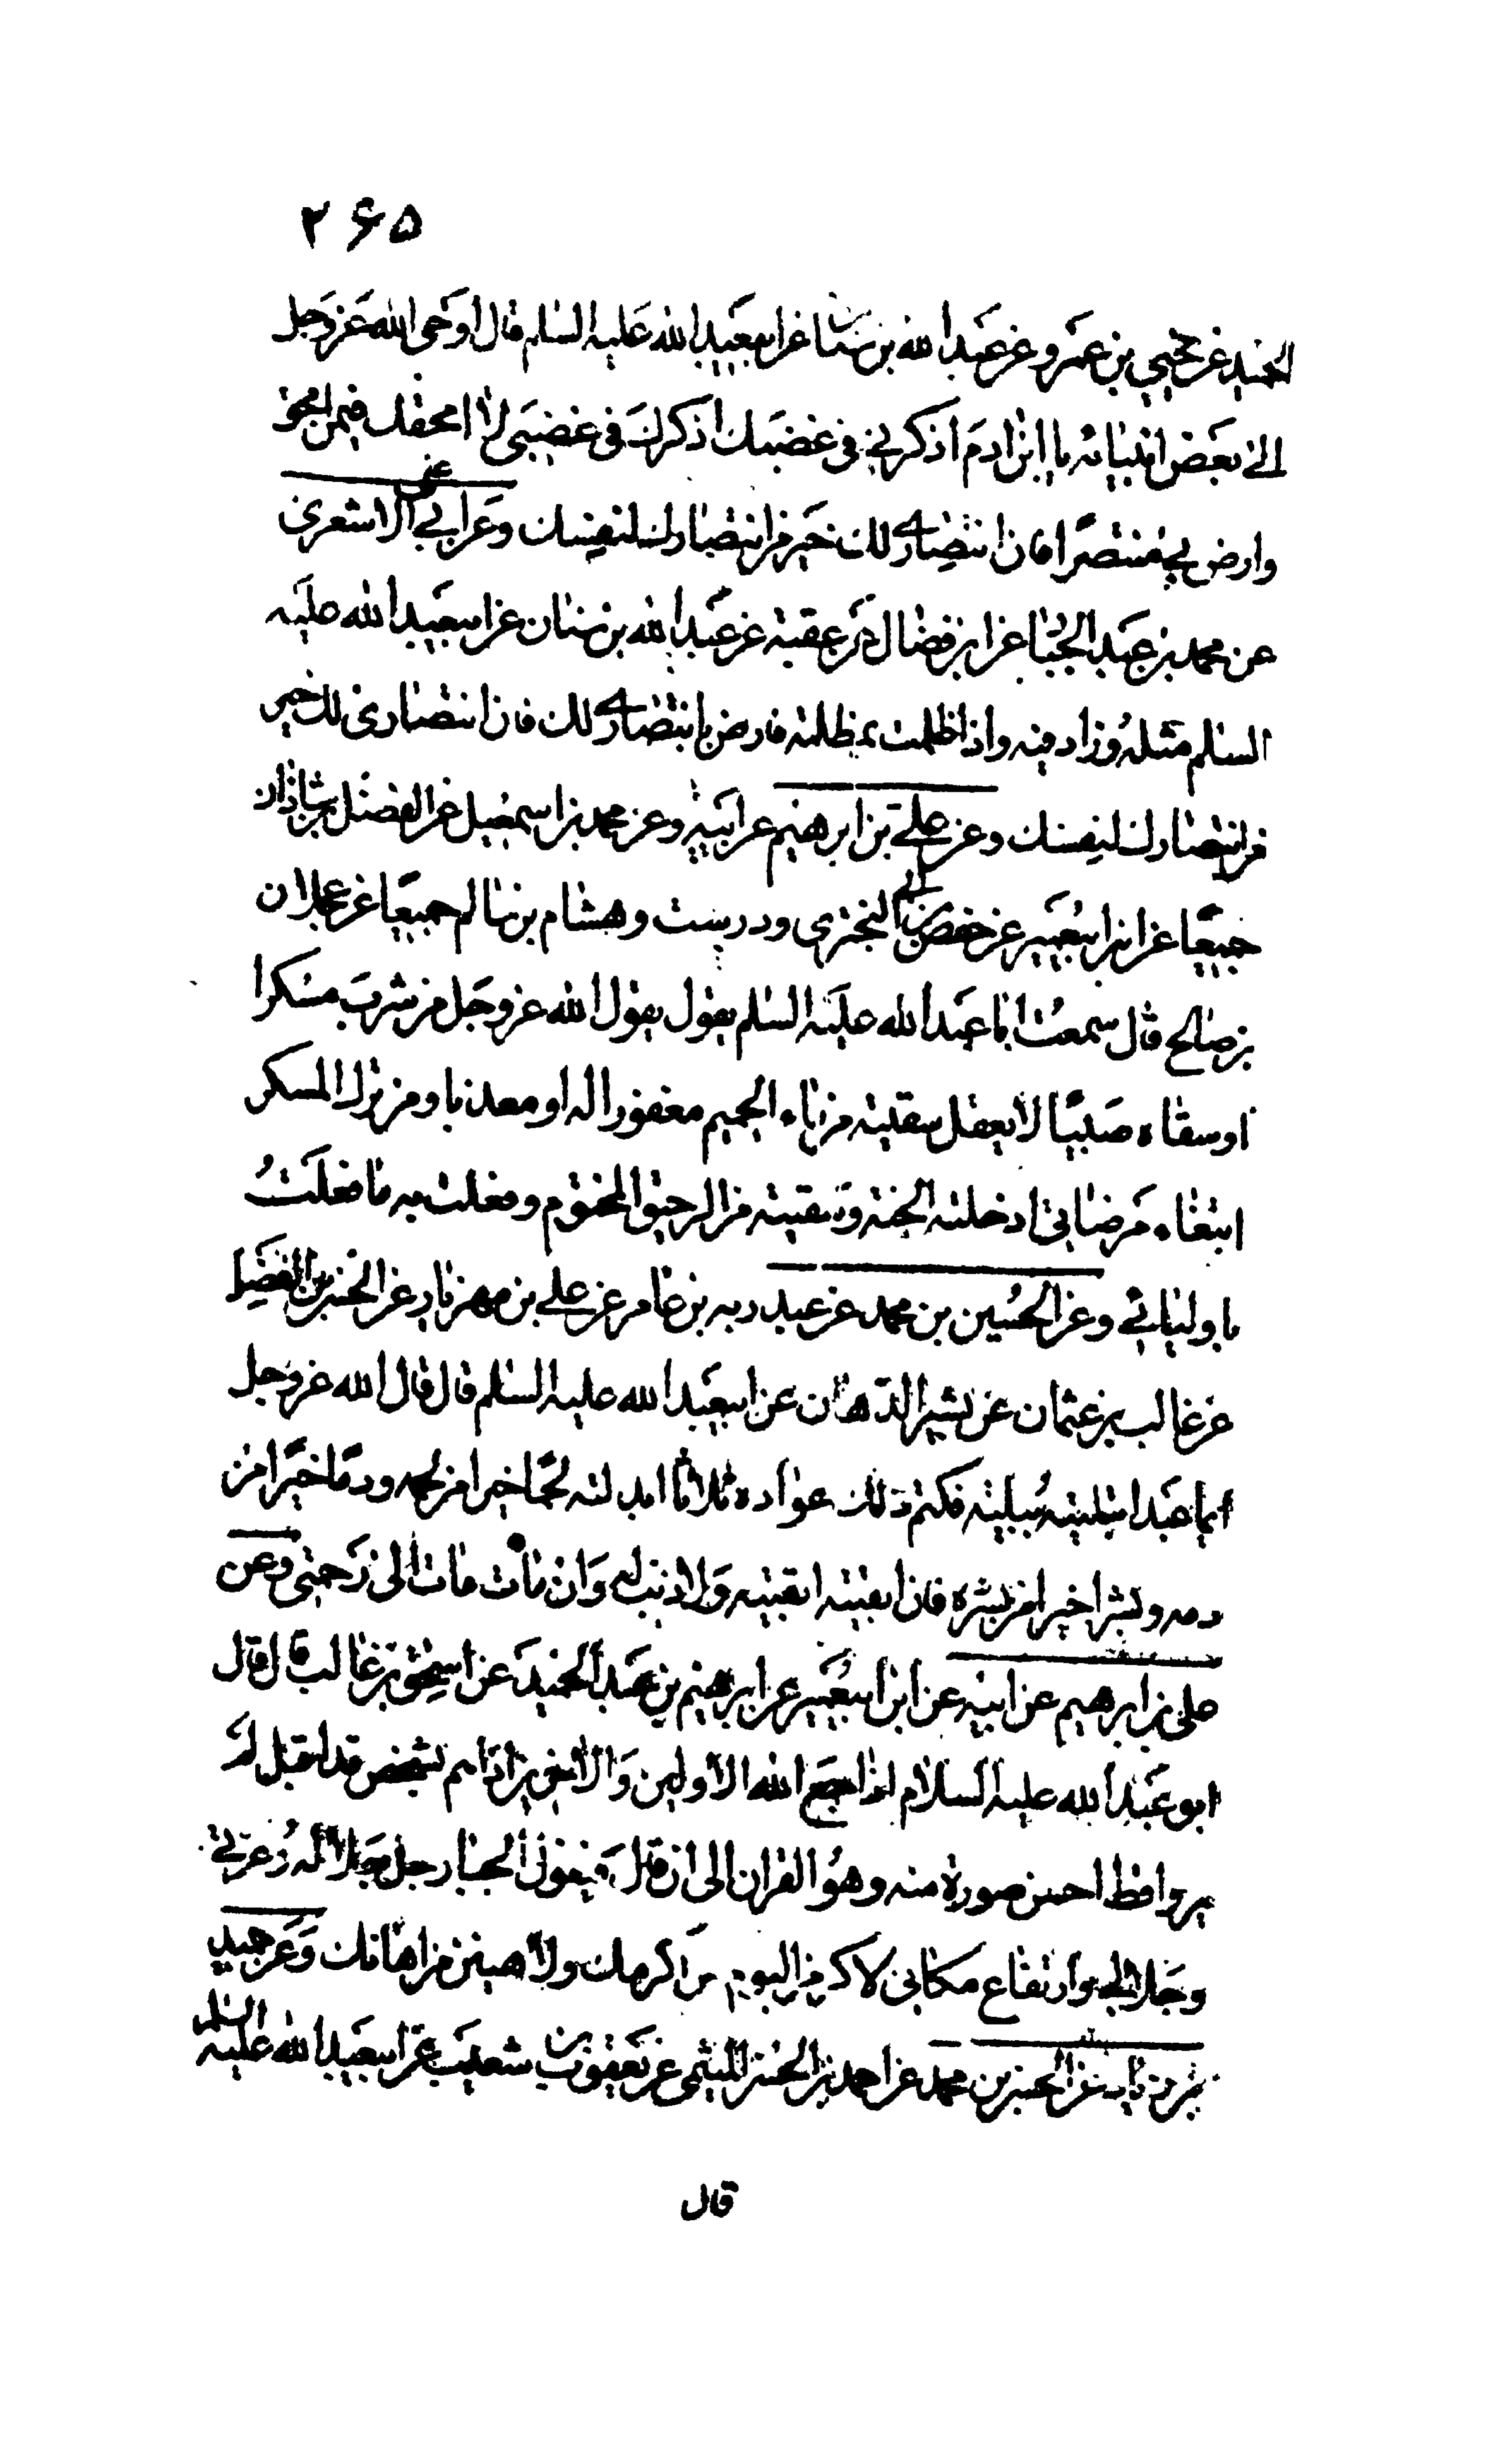 ۲۶۵
الحميد عن يحيى بن عمرو عن عبد الله بن سنان عن ابيعبد الله عليه السلم قال اوحى الله عز وجل
الى بعض انبيائه يا ابن ادم اذكرني في غضبك اذكرك في غضبى لا امحقك فيمن امحق
وارض بي منتصرا فان انتصارى لك خير من انتصارك لنفسك وعن ابي على الاشعرى
عن محمد بن عبد الجبار عن ابن فضال عن على بن عقبة عن عبد الله بن سنان عن ابيعبد الله عليه
السلم مثله وزاد فيه واذا ظلمت بمظلمة فارض بانتصارى لك فان انتصارى لك خير
من انتصارك لنفسك وعن علي بن ابرهيم عن ابيه وعن محمد بن اسمعيل عن الفضل بن شاذان
جميعا عن ابن ابيعمير عن حفص بن البخترى ودرست وهشام بن سالم جميعا عن عجلان
بن صالح قال سمعت ابا عبد الله عليه السلم يقول يقول الله عز وجل من شرب مسكرا
او سقاه صبيا لا يعقل سقيته من ماء الحميم مغفورا له او معذبا ومن ترك المسكر
ابتغاء مرضاتى ادخلته الجنة وسقيته من الرحيق المختوم وفعلت به ما فعلت
باوليائي وعن الحسين بن محمد عن عبد ربه بن عامر عن علي بن مهزيار عن الحسن بن الفضيل
عن غالب بن عثمان عن بشير الدهان عن ابيعبد الله عليه السلم قال قال الله عز وجل
ايما عبد ابتليته ببلية فكتم ذلك عواده ثلاثا ابدلته لحما خيرا من لحمه ودما خيرا من
دمه وبشرا خيرا من بشره فان ابقيته ابقيته ولا ذنب له وان مات مات الى رحمتى وعن
على بن ابرهيم عن ابيه عن ابن ابيعمير عن ابرهيم بن عبد الحميد عن اسحق بن غالب قال قال
ابو عبد الله عليه السلام اذا جمع الله الاولين والاخرين اذا هم بشخص قد اقبل لم
ير وا قط احسن صورة منه وهو القران الى ان قال فيقول الجبار جل جلاله وعزتي
وجلالي وارتفاع مكانى لاكرمن اليوم من اكرمك ولاهينن من اهانك وعن حميد
بن زياد عن الحسن بن محمد عن احمد بن الحسن الميثمى عن يعقوب بن شعيب عن ابيعبد الله عليه السلم
قال